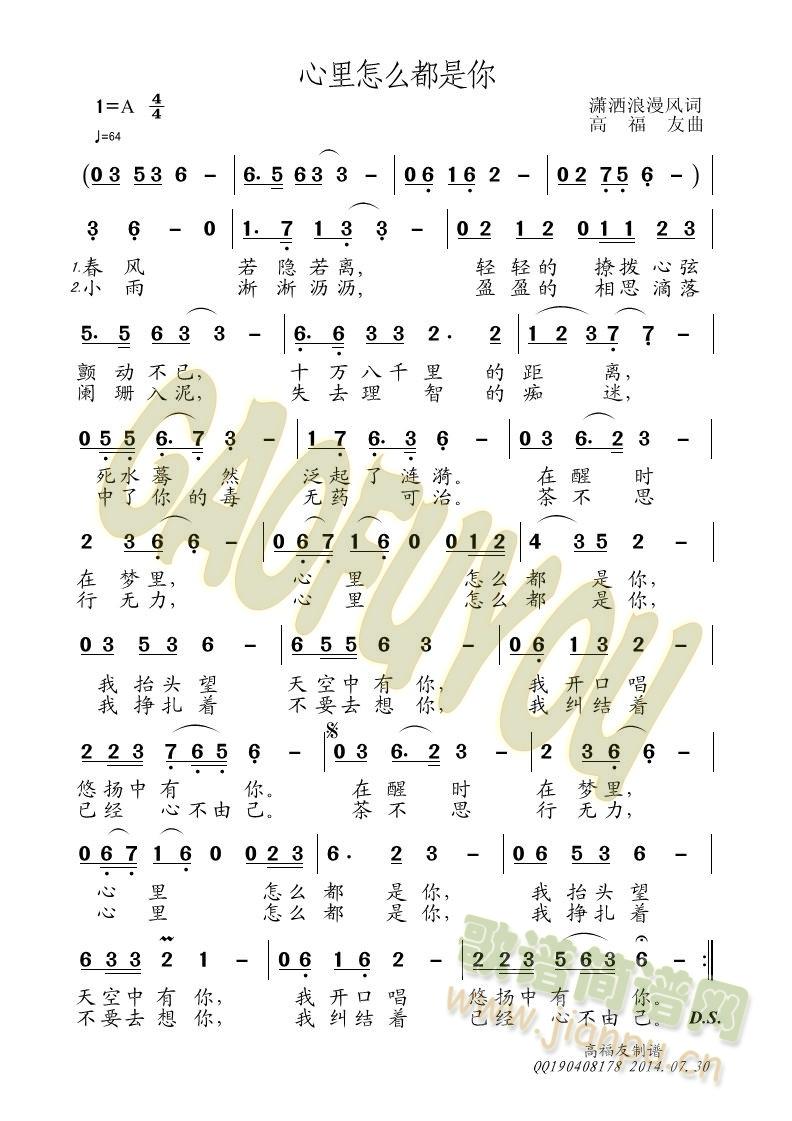 心里怎么都是你
1=A 4/4
潇洒浪漫风词
♩=64
高 福 友曲
(0 3 5 3 6 - | 6. 5 6 3 3 - | 0 6 1 6 2 - | 0 2 7 5 6 - ) |
3 6 - 0 | 1. 7 1 3 3 - | 0 2 1 2 0 1 1 2 3 |
1.春 风 若 隐 若 离, 轻 轻 的 撩 拨 心 弦
2.小 雨 淅 淅 沥 沥, 盈 盈 的 相 思 滴 落
5. 5 6 3 3 - | 6. 6 3 3 2. 2 | 1 2 3 7 7 - |
颤 动 不 已, 十 万 八 千 里 的 距 离,
阑 珊 入 泥, 失 去 理 智 的 痴 迷,
0 5 5 6. 7 3 - | 1 7 6. 3 6 - | 0 3 6. 2 3 - |
死 水 蓦 然 泛 起 了 涟 漪。 在 醒 时
中 了 你 的 毒 无 药 可 治。 茶 不 思
2 3 6 6 - | 0 6 7 1 6 0 0 1 2 | 4 3 5 2 - |
在 梦 里, 心 里 怎 么 都 是 你,
行 无 力, 心 里 怎 么 都 是 你,
0 3 5 3 6 - | 6 5 5 6 3 - | 0 6 1 3 2 - |
我 抬 头 望 天 空 中 有 你, 我 开 口 唱
我 挣 扎 着 不 要 去 想 你, 我 纠 结 着
2 2 3 7 6 5 6 - | 𝄋 0 3 6. 2 3 - | 2 3 6 6 - |
悠 扬 中 有 你。 在 醒 时 在 梦 里,
已 经 心 不 由 己。 茶 不 思 行 无 力,
0 6 7 1 6 0 0 2 3 | 6. 2 3 - | 0 6 5 3 6 - |
心 里 怎 么 都 是 你, 我 抬 头 望
心 里 怎 么 都 是 你, 我 挣 扎 着
6 3 3 2 1 - | 0 6 1 6 2 - | 2 2 3 5 6 3 6 - :||
天 空 中 有 你, 我 开 口 唱 悠 扬 中 有 你。
不 要 去 想 你, 我 纠 结 着 已 经 心 不 由 己。 D.S.
高福友制谱
QQ190408178 2014.07.30
GAOFUYOU
歌谱简谱网
www.jianpu.cn